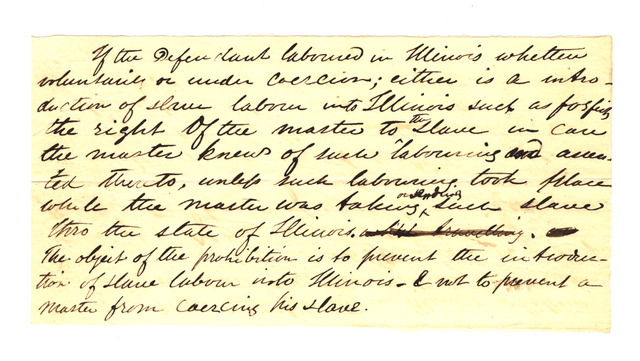 If the Defendant laboured in Illinois whether
voluntarily or under coercion; either is a intro-
duction of slave labour into Illinois such as forfeits
the right Of the master to the Slave in case
the master knew of such labouring and assen-
ted thereto, unless such labouring took place
while the master was taking or sending such slave
thro the state of Illinois.
The object of the prohibition is to prevent the introduc-
tion of slave labour into Illinois - & not to prevent a
master from coercing his slave.